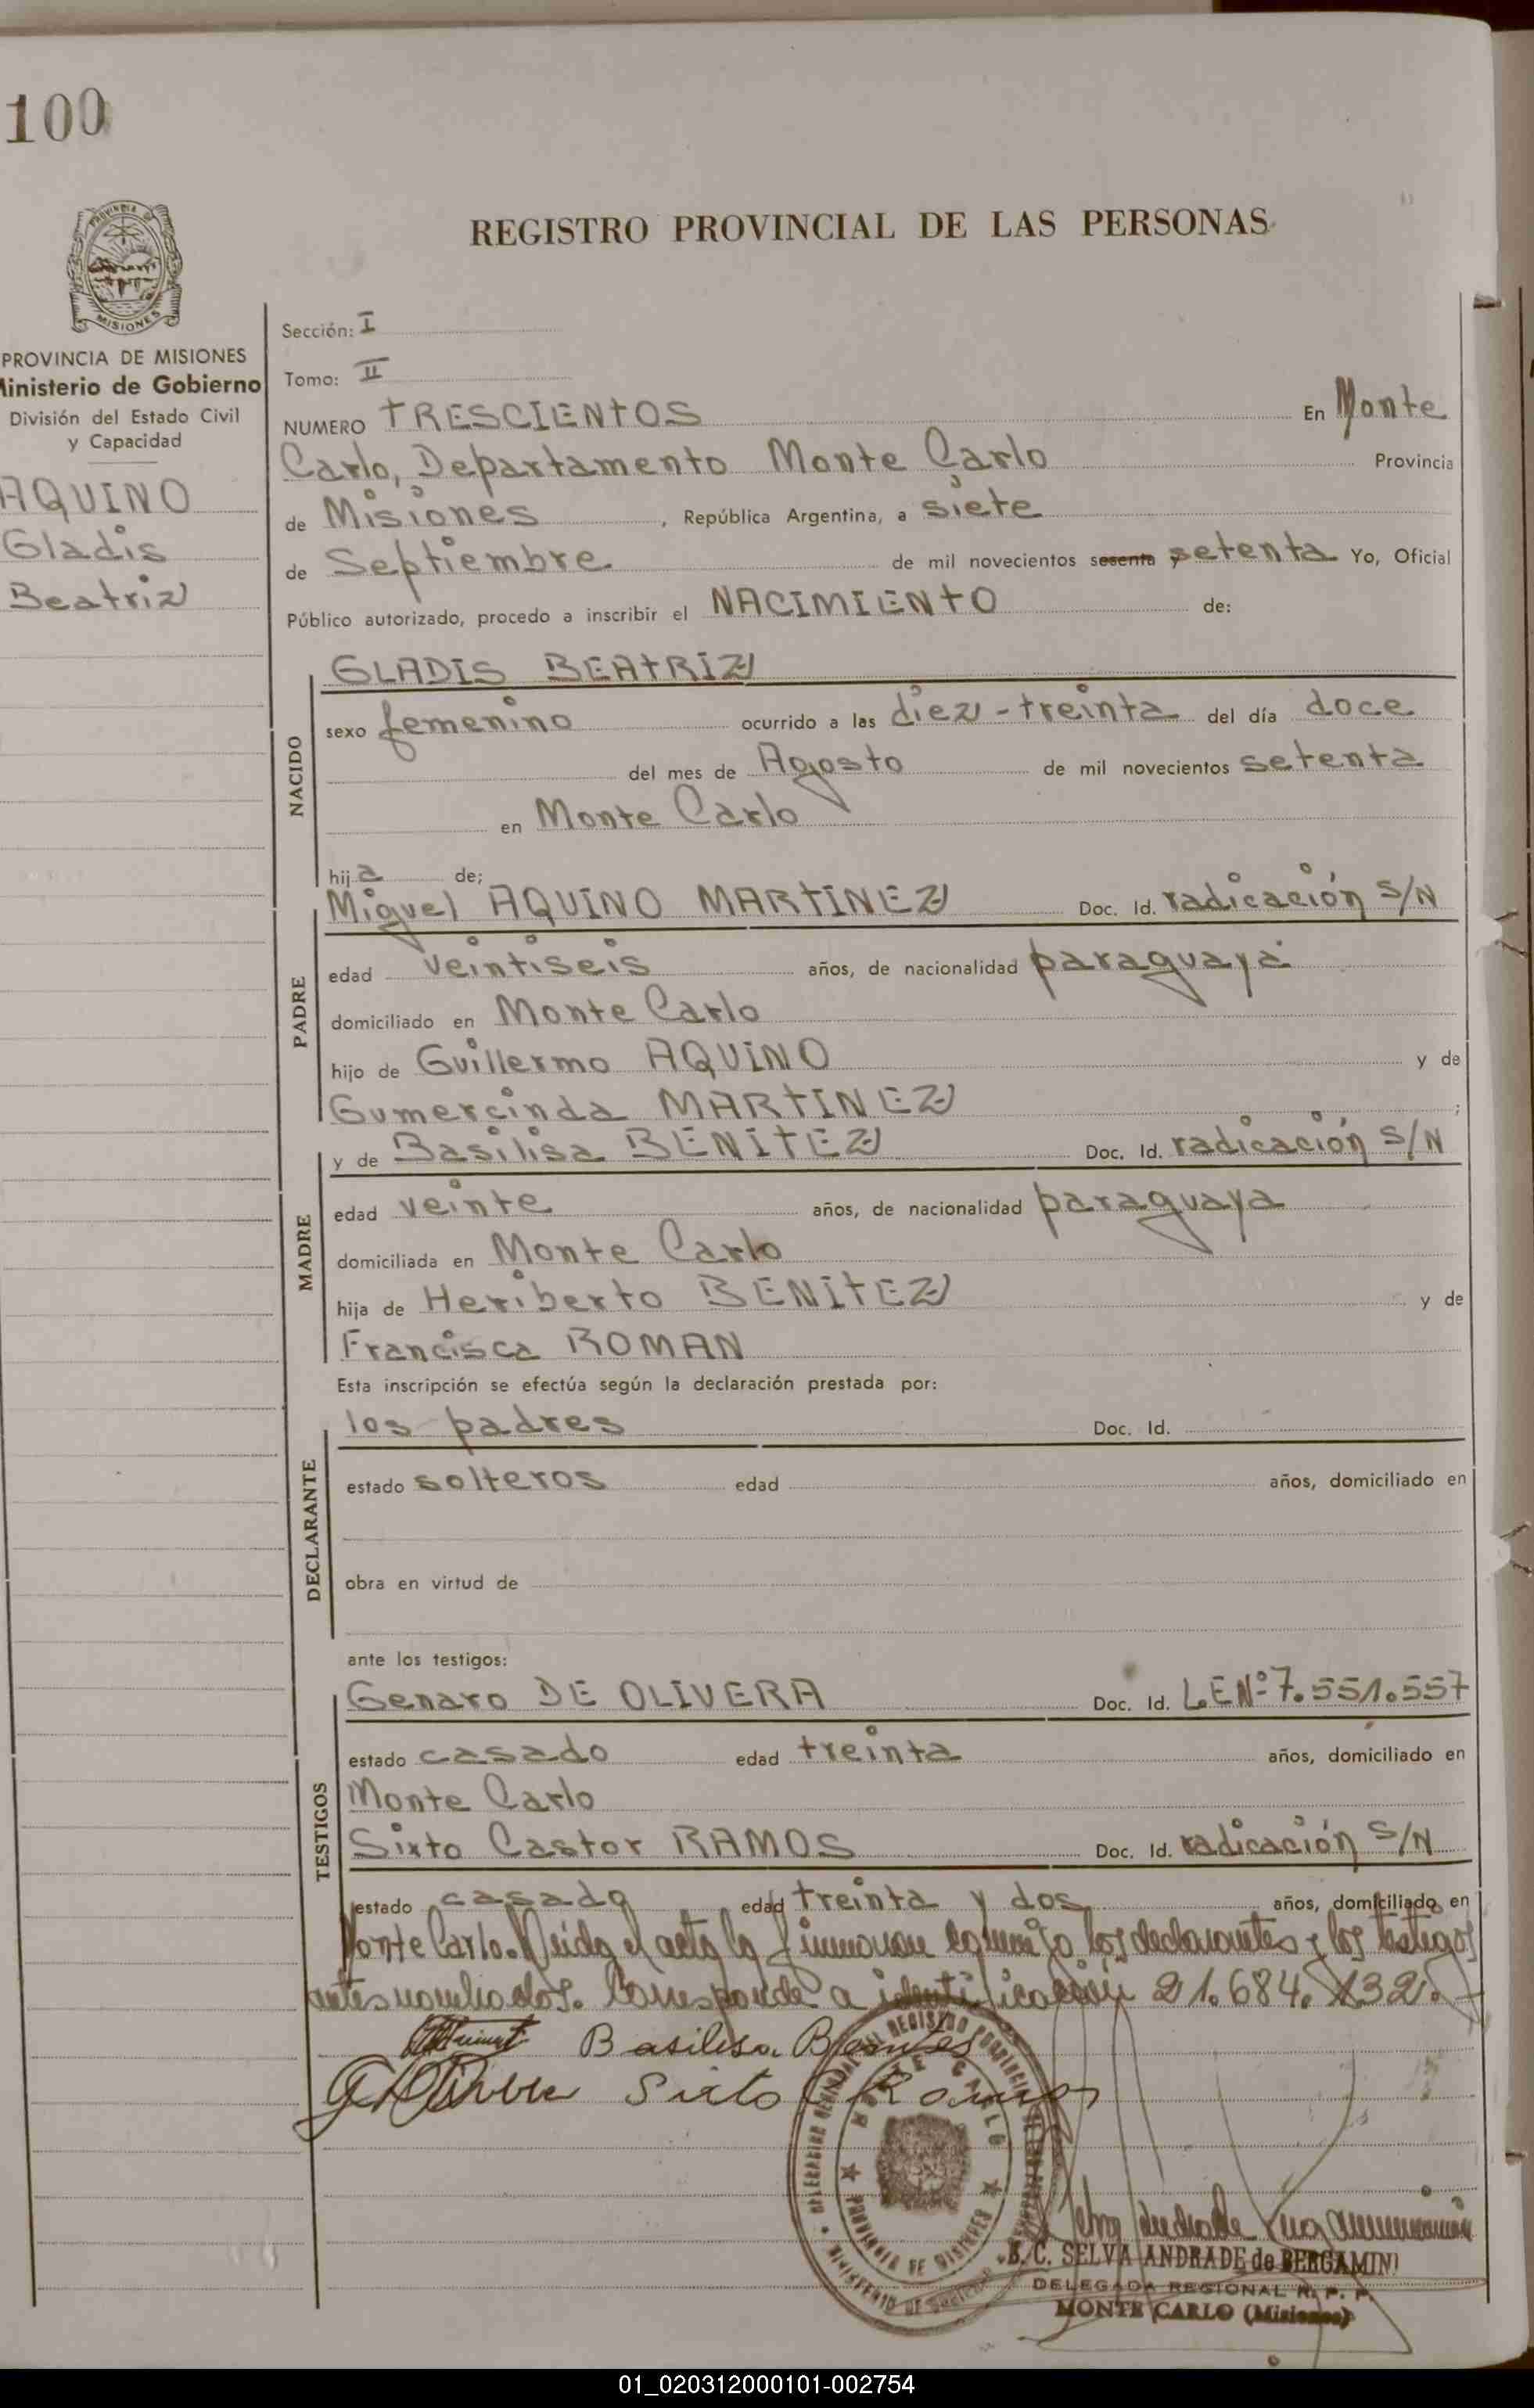 100
PROVINCIA DE MISIONES
REGISTRO PROVINCIAL DE LAS PERSONAS
PROVINCIA DE MISIONES
Ministerio de Gobierno
División del Estado Civil
y Capacidad
AQUINO
Gladis
Beatriz
Sección: I
Tomo: II
NUMERO TRESCIENTOS En Monte
Carlo, Departamento Monte Carlo Provincia
de Misiones, República Argentina, a siete
de Septiembre de mil novecientos sesenta y setenta Yo, Oficial
Público autorizado, procedo a inscribir el NACIMIENTO de:
NACIDO
GLADIS BEATRIZ
sexo femenino ocurrido a las diez-treinta del día doce
del mes de Agosto de mil novecientos setenta
en Monte Carlo
hija de;
PADRE
Miguel AQUINO MARTINEZ Doc. Id. radicación S/N
edad veintiseis años, de nacionalidad paraguaya
domiciliado en Monte Carlo
hijo de Guillermo AQUINO y de
Gumercinda MARTINEZ ;
MADRE
y de Basilisa BENITEZ Doc. Id. radicación S/N
edad veinte años, de nacionalidad paraguaya
domiciliada en Monte Carlo
hija de Heriberto BENITEZ y de
Francisca ROMAN
Esta inscripción se efectúa según la declaración prestada por:
DECLARANTE
los padres Doc. Id.
estado solteros edad años, domiciliado en
obra en virtud de
ante los testigos:
TESTIGOS
Genaro DE OLIVERA Doc. Id. L.E Nº 7.551.557
estado casado edad treinta años, domiciliado en
Monte Carlo
Sixto Castor RAMOS Doc. Id. radicación S/N
estado casado edad treinta y dos años, domiciliado en
Monte Carlo. Leida el acta la firmaron conmigo los declarantes y los testigos
antes nombrados. Corresponde a identificación 21.684.132.
Basilisa
Sixto C Ramos
MONTE CARLO
PROVINCIA DE MISIONES
B. C. SELVA ANDRADE de BERGAMINI
DELEGADA REGIONAL R. P. P.
MONTE CARLO (Misiones)
01_020312000101-002754